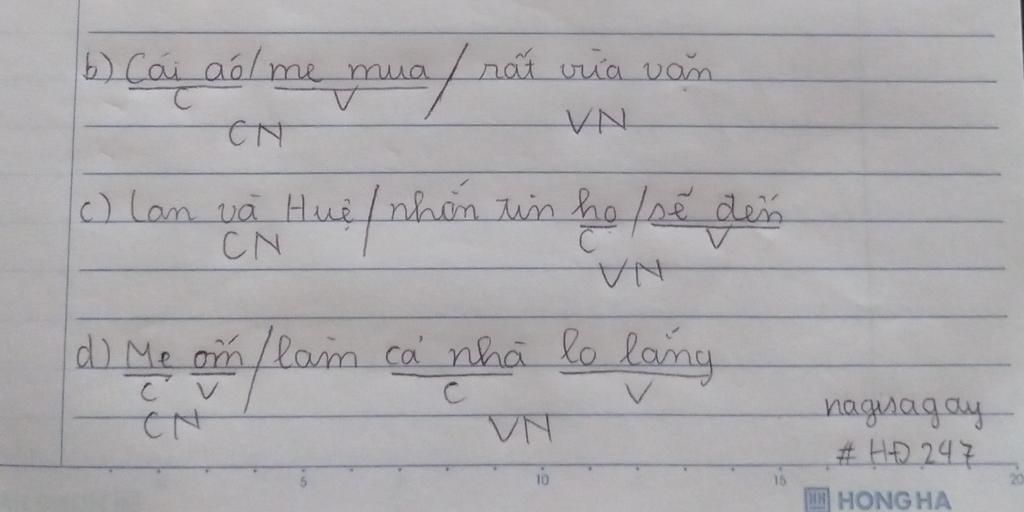 b) Cái áo / mẹ mua / rất vừa vặn
C V
CN VN
c) Lan và Huệ / nhắn tin họ / sẽ đến
CN C V
VN
d) Mẹ ốm / làm cả nhà lo lắng
C V C V
CN VN
nagisagay
# HĐ 247
5 10 15 20
HH HONG HA